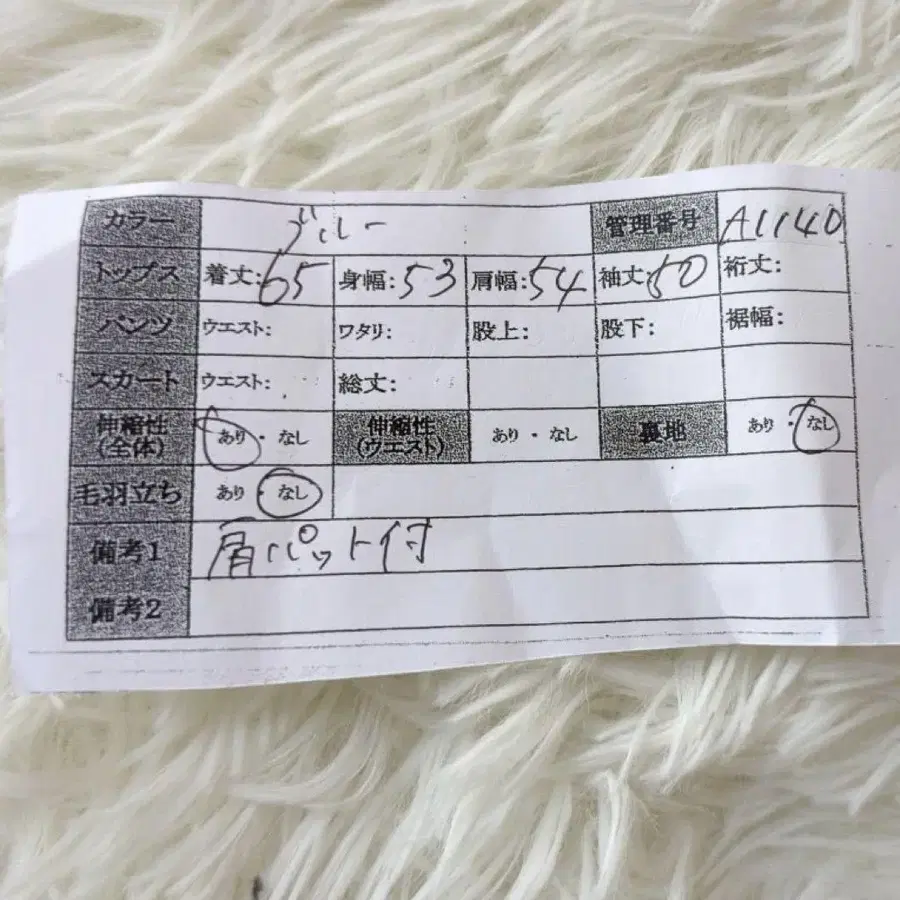 カラー ブルー 管理番号 A1140
トップス 着丈:65 身幅:53 肩幅:54 袖丈:50 裄丈:
パンツ ウエスト: ワタリ: 股上: 股下: 裾幅:
スカート ウエスト: 総丈:
伸縮性(全体) あり・なし 伸縮性(ウエスト) あり・なし 裏地 あり・なし
毛羽立ち あり・なし
備考1 肩パット付
備考2